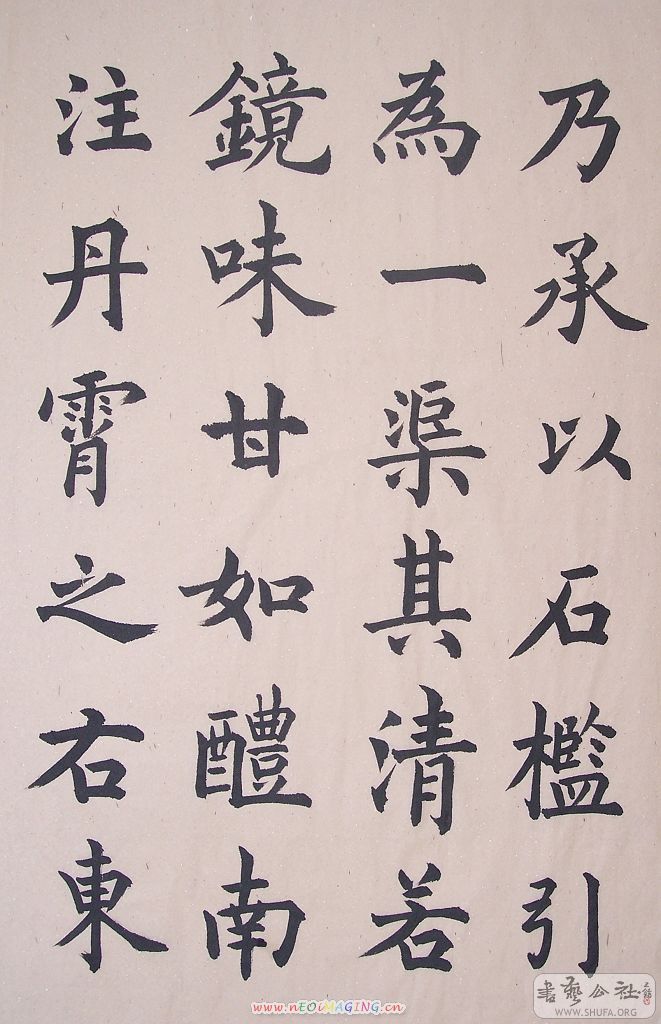 乃承以石檻引
為一渠其清若
鏡味甘如醴南
注丹霄之右東
www.nEOiMAGiNG.cn
書藝公社
WWW.SHUFA.ORG